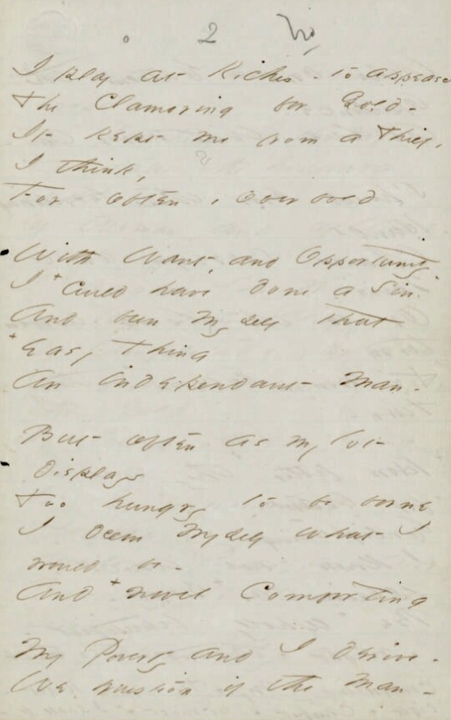 2
I play at Riches - to appease
The Clamoring for Gold -
It kept me from a Thief,
I think,
For often, overbold
With Want, and Opportunity -
I + could have done a Sin
And been Myself that
+ easy Thing
An independent Man -
But often as my lot
displays
Too hungry to be borne
I deem Myself what I
would be -
And + novel Comforting
My Poverty and I derive -
We question if the Man -